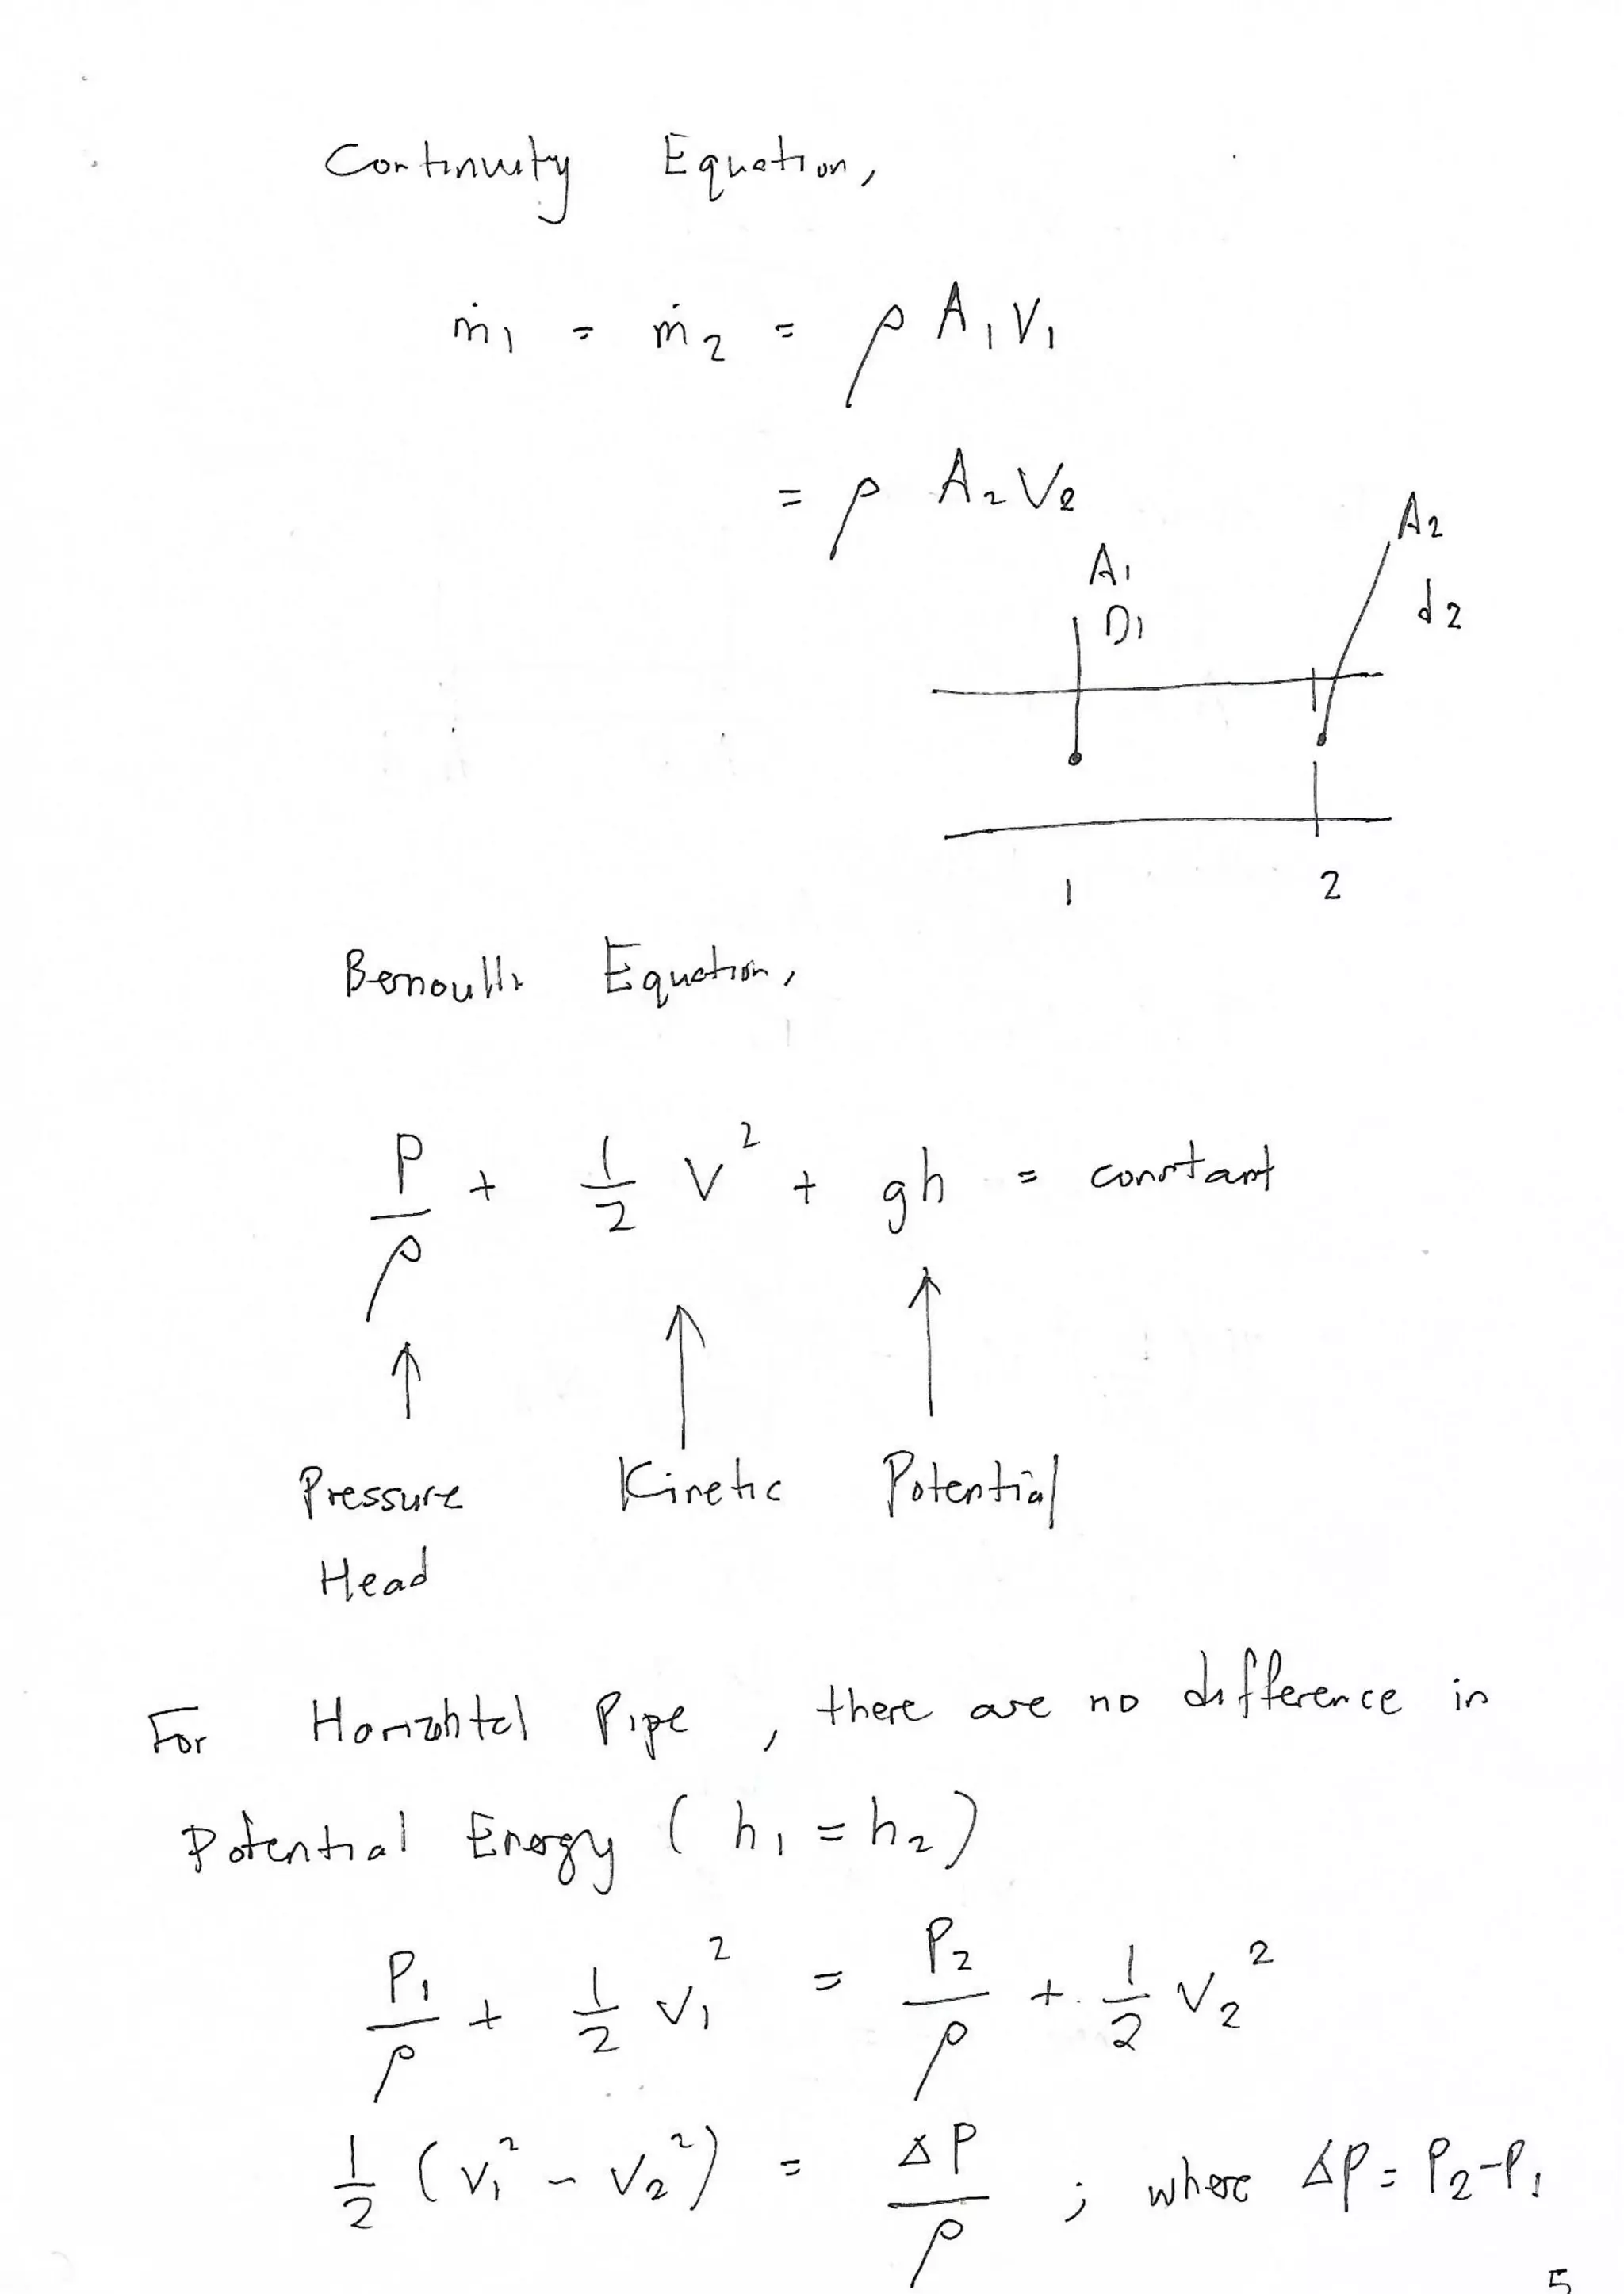 Continuity Equation,
ṁ1 = ṁ2 = ρ A1 V1
= ρ A2 V2
A1
D1
A2
d2
1 2
Bernoulli Equation,
P/ρ + 1/2 V² + gh = constant
↑ ↑ ↑
Pressure Kinetic Potential
Head
For Horizontal Pipe, there are no difference in
Potential Energy (h1 = h2)
P1/ρ + 1/2 V1² = P2/ρ + 1/2 V2²
1/2 (V1² - V2²) = ΔP/ρ ; where ΔP = P2-P1
5